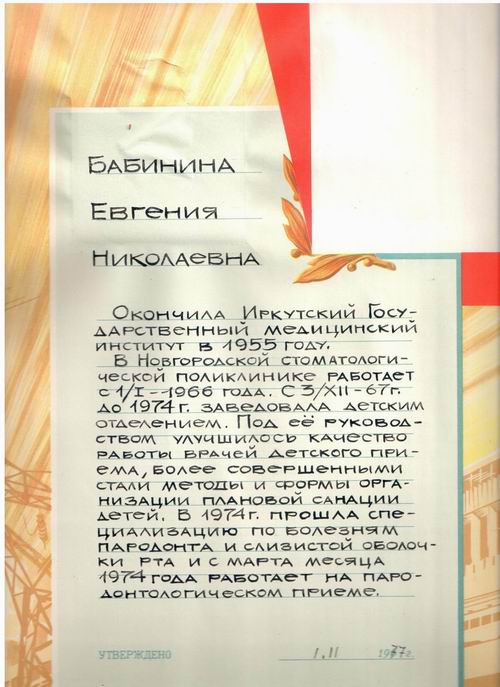 БАБИНИНА
ЕВГЕНИЯ
НИКОЛАЕВНА
ОКОНЧИЛА ИРКУТСКИЙ ГОСУ-
ДАРСТВЕННЫЙ МЕДИЦИНСКИЙ
ИНСТИТУТ В 1955 ГОДУ.
В НОВГОРОДСКОЙ СТОМАТОЛОГИ-
ЧЕСКОЙ ПОЛИКЛИНИКЕ РАБОТАЕТ
С 1/I-1966 ГОДА. С 3/XII-67г.
ДО 1974г. ЗАВЕДОВАЛА ДЕТСКИМ
ОТДЕЛЕНИЕМ. ПОД ЕЁ РУКОВОД-
СТВОМ УЛУЧШИЛОСЬ КАЧЕСТВО
РАБОТЫ ВРАЧЕЙ ДЕТСКОГО ПРИ-
ЕМА, БОЛЕЕ СОВЕРШЕННЫМИ
СТАЛИ МЕТОДЫ И ФОРМЫ ОРГА-
НИЗАЦИИ ПЛАНОВОЙ САНАЦИИ
ДЕТЕЙ. В 1974г. ПРОШЛА СПЕ-
ЦИАЛИЗАЦИЮ ПО БОЛЕЗНЯМ
ПАРОДОНТА И СЛИЗИСТОЙ ОБОЛОЧ-
КИ РТА И С МАРТА МЕСЯЦА
1974 ГОДА РАБОТАЕТ НА ПАРО-
ДОНТОЛОГИЧЕСКОМ ПРИЕМЕ.
УТВЕРЖДЕНО 1.II 1977г.